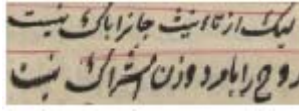 لیک از تاءنیث جانرا باک نیست
روح را با مرد و زن اشراک نیست